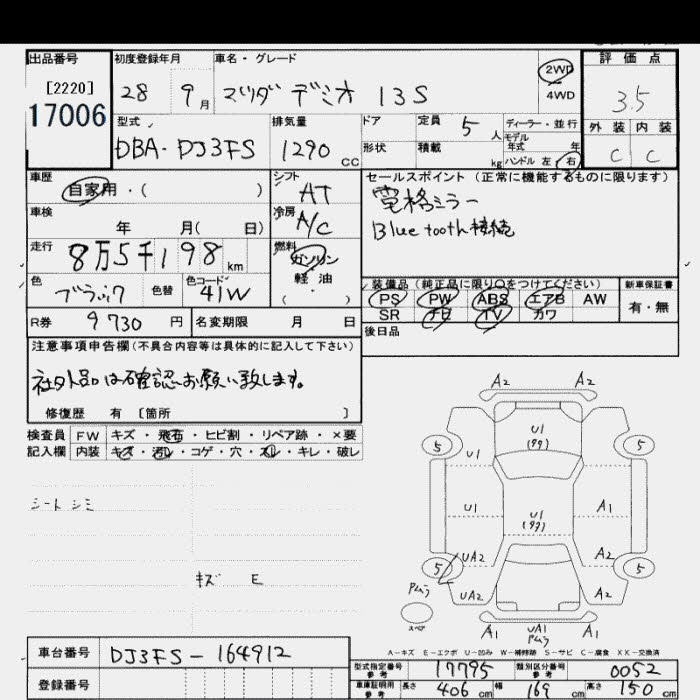 出品番号 初度登録年月 車名・グレード 2WD 評価点
[2220] 28 9月 マツダ デミオ 13S 4WD 3.5
17006 型式 排気量 ドア 定員 5人 ディーラー・並行 外装 内装
DBA-DJ3FS 1290cc 形状 積載 kg モデル年式 年 C C
ハンドル 左・右
車歴 シフト セールスポイント (正常に機能するものに限ります)
自家用・( ) AT 電格ミラー
車検 冷房 Blue tooth接続
年 月( 日) A/C
走行 燃料
8万5千198km ガソリン
色 色替 色コード 軽油 装備品(純正品に限り○をつけてください) 新車保証書
ブラック 41W ( ・ ) PS PW ABS エアB AW 有・無
R券 9730円 名変期限 月 日 SR ナビ TV カワ
後日品
注意事項申告欄(不具合内容等は具体的に記入して下さい)
社外品は確認お願い致します。
修復歴 有 [箇所 ]
検査員 FW キズ・飛石・ヒビ割・リペア跡・×要
記入欄 内装 キズ・汚レ・コゲ・穴・スレ・キレ・破レ
シートシミ
キズ E
A2 A2
U1
(99)
5 5
U1
U1 U1 A1
(99)
UA2 A2
5 5
UA2 A2
スペア
A1 UA1 A1
A-キズ E-エクボ U-凹み W-補修跡 S-サビ C-腐食 XX-交換済
車台番号 DJ3FS-164912
登録番号
型式指定番号 参考 17795 類別区分番号 参考 0052
車庫証明用 参考 長さ 406cm 幅 169cm 高さ 150cm